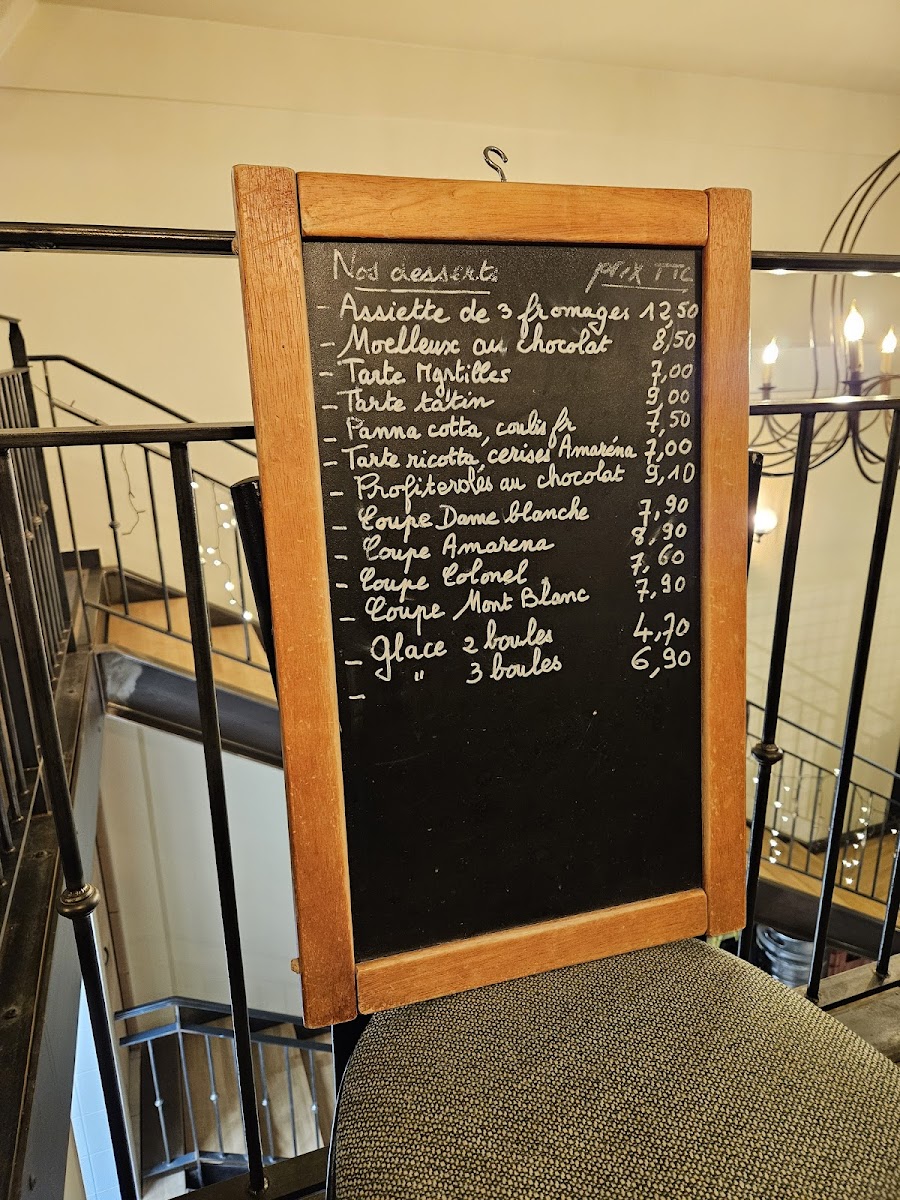 Nos desserts prix TTC
- Assiette de 3 fromages 12,50
- Moelleux au chocolat 8,50
- Tarte Myrtilles 7,00
- Tarte tatin 9,00
- Panna cotta, coulis fr 7,50
- Tarte ricotta, cerises Amaréna 7,00
- Profiteroles au chocolat 9,10
- Coupe Dame blanche 7,90
- Coupe Amarena 8,90
- Coupe Colonel 7,60
- Coupe Mont Blanc 7,90
- Glace 2 boules 4,70
- " 3 boules 6,90